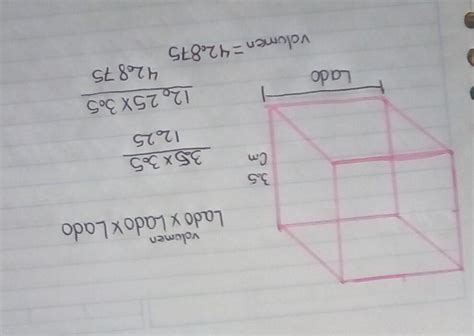 volumen
Lado x Lado x Lado
3.5 x 3.5
12.25
12.25 x 3.5
42.875
volumen = 42.875
3.5
cm
Lado